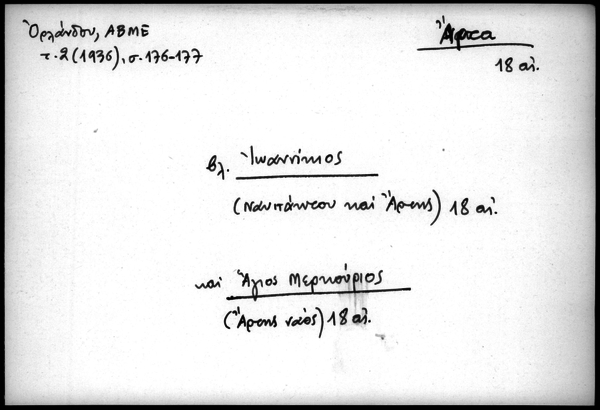 Ὀρλάνδου, ΑΒΜΕ
τ. 2 (1936), σ. 176-177
Ἄρτα
18 αἰ.
βλ. Ἰωαννίκιος
(Ναυπάκτου καὶ Ἄρτης) 18 αἰ.
καὶ Ἅγιος Μερκούριος
(Ἄρτης ναός) 18 αἰ.